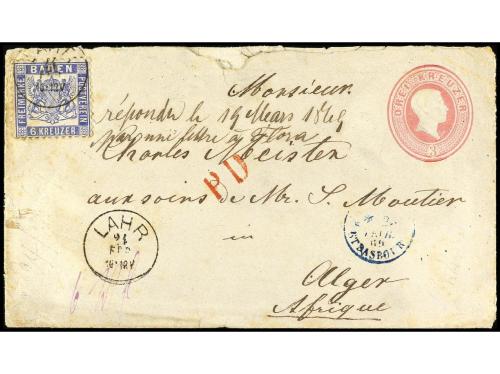 LAHR
BADEN
FREIMARKE
POSTVEREIN
6 KREUZER
DREI KREUZER
3
Monsieur
répondu le 19 Mars 1869
Charles Meister
PD
aux soins de Mr. S. Moutier
LAHR
24
FEB
in
STRASBOURG
69
Alger
Afrique